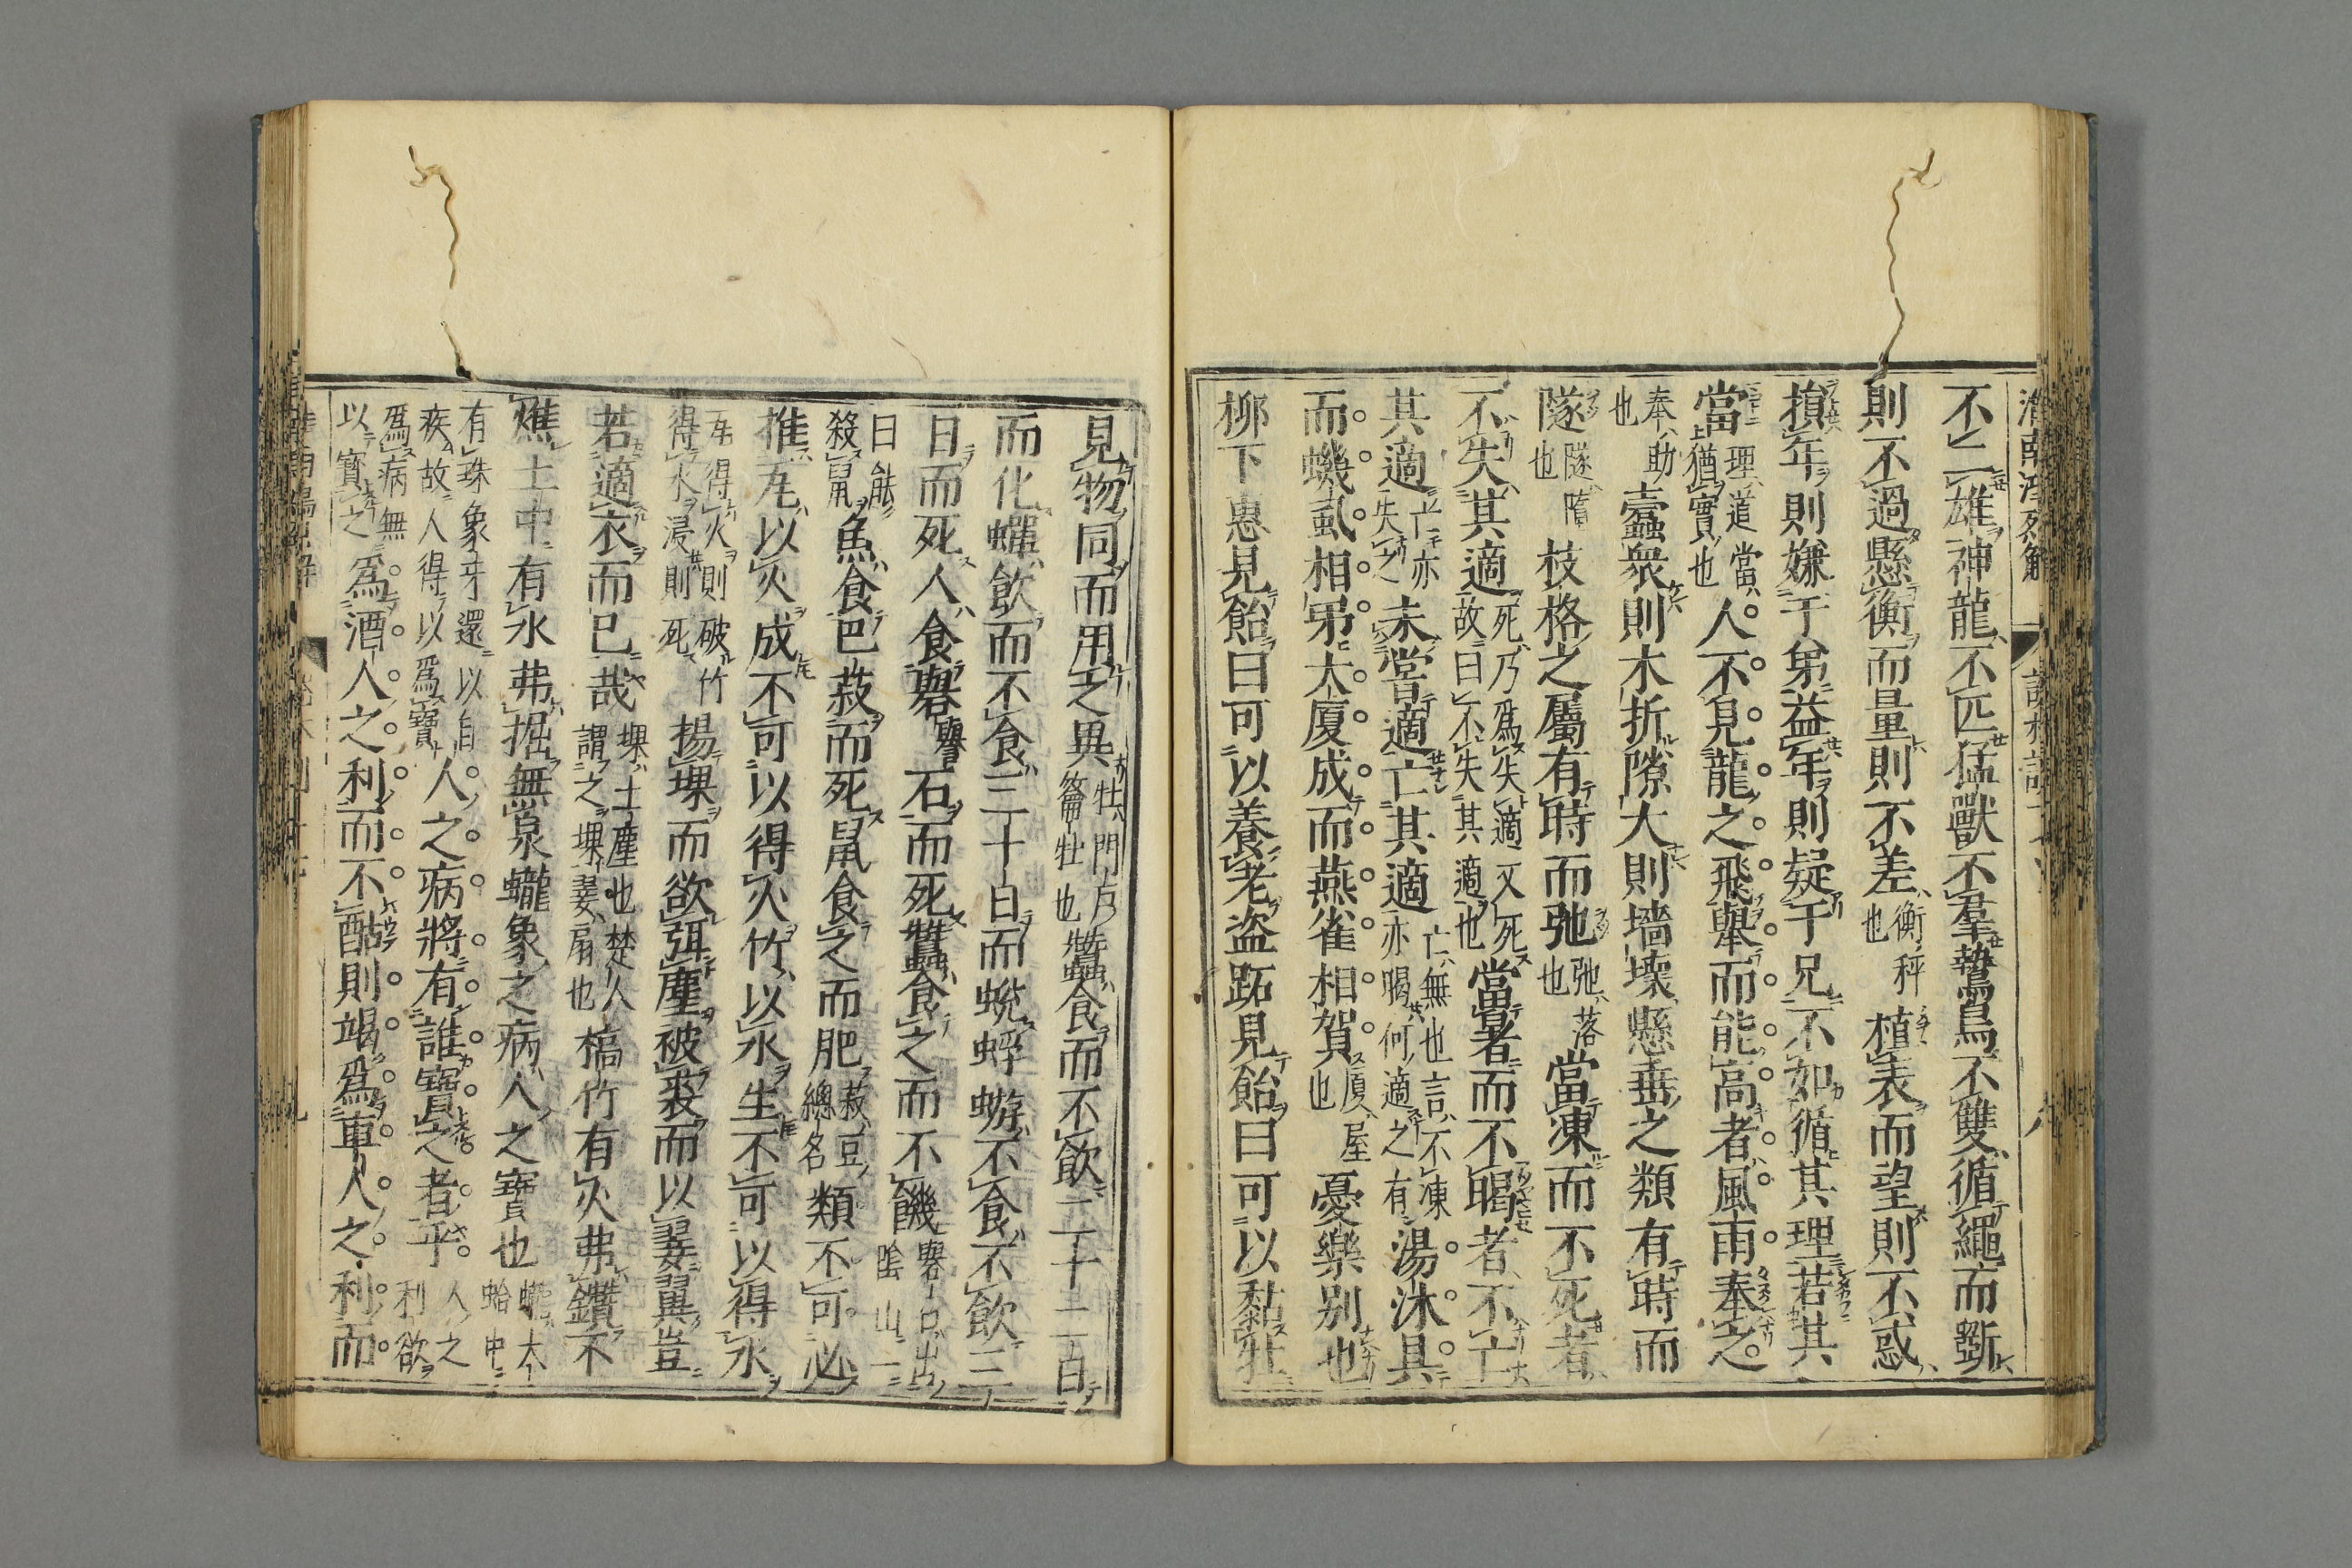 淮南鴻烈解
不二雄神龍不匹猛獸不羣鷙鳥不雙循繩而斲
則不過懸衡而量則不差衡秤也植表而望則不惑
損年則嫌于弟益年則疑于兄不如循其理若其
當理道當猶實也人不見龍之飛舉而能高者風雨奉之
奉助也蠹衆則木折隙大則墻壞懸垂之類有時而
隧隧隋也枝格之屬有時而弛弛落也當凍而不死者
不失其適死乃爲失適又死故曰不失其適也當暑而不暍者不亡
其適亡亦失之未嘗適亡其適亡無也言不凍亦暍何適之有湯沐具
而蟣虱相弔大厦成而燕雀相賀厦屋也憂樂別也
柳下惠見飴曰可以養老盜跖見飴曰可以黏牡
見物同而用之異牡門戶籥牡也蠶食而不飲二十二日
而化蟬飲而不食三十日而蛻蜉蝣不食不飲三
日而死人食礜石而死蠶食之而不饑礜石出陰山一
曰能殺鼠魚食巴菽而死鼠食之而肥菽豆總名類不可必
推瓦以火成不可以得火竹以水生不可以得水
瓦得火則破竹得水浸則死揚堁而欲弭塵被裘而以翣翼豈
若適衣而已哉堁土塵也楚人謂之堁翣扇也槁竹有火弗鑽不
㸐土中有水弗掘無泉蠬象之病人之寶也蠬大蛤中
有珠象牙還以自疾故人得以爲寶人之病將有誰寶之者乎人之利欲
爲病無以寶之爲酒人之利而不酤則竭爲車人之利而